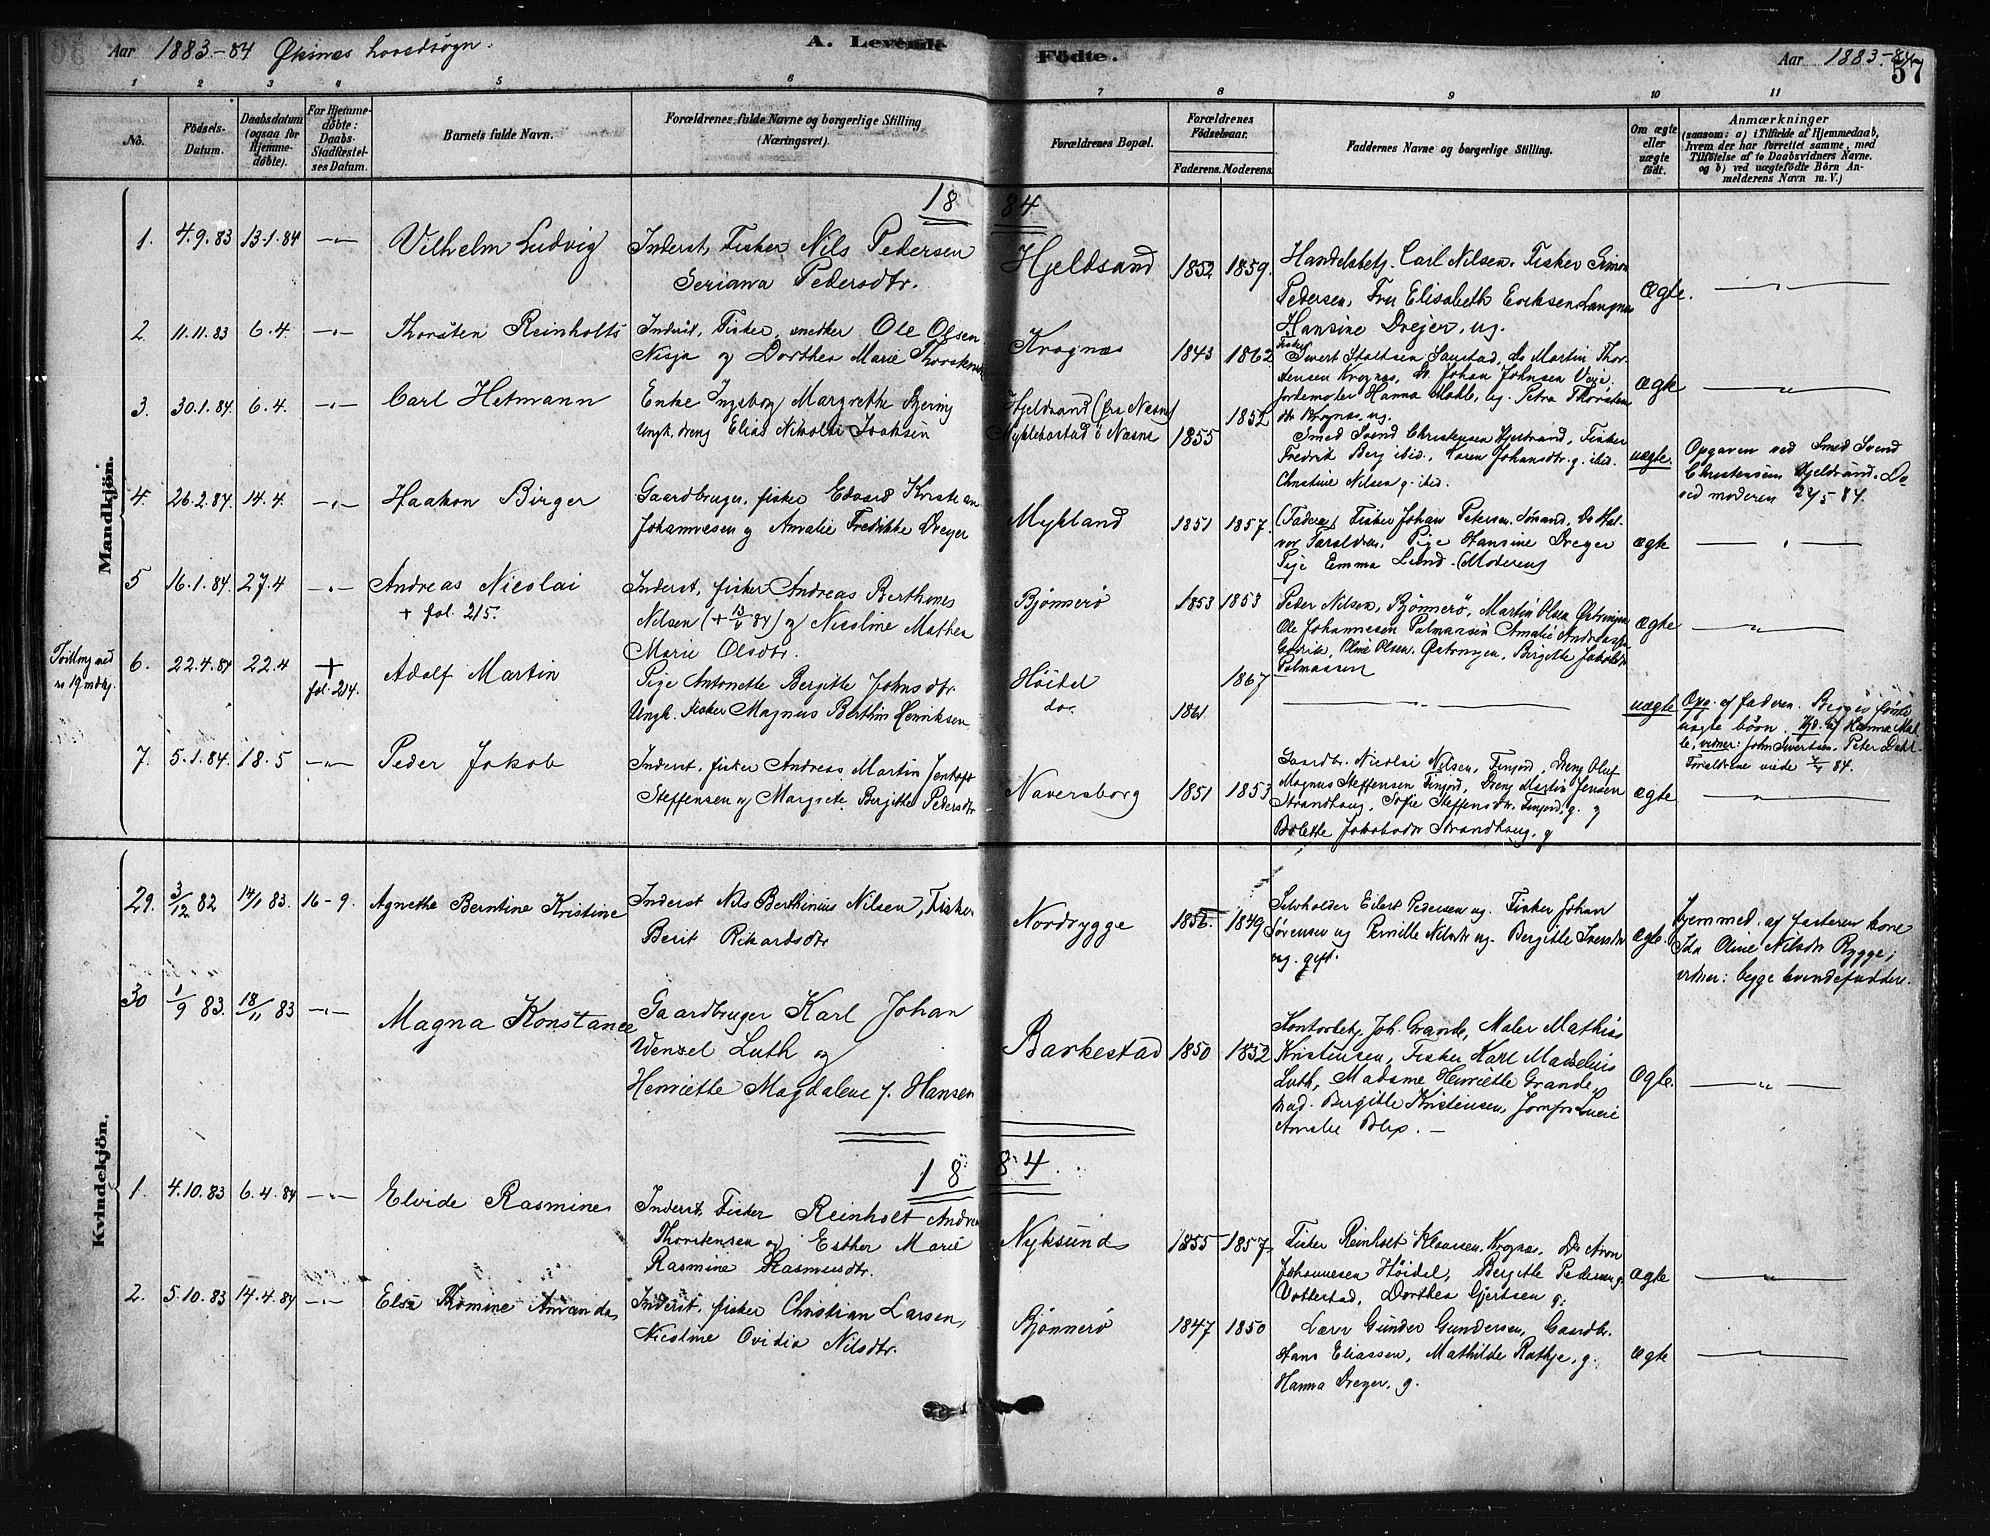 Aar 1883-84 Øksnæs hovedsogn.
A. Levende Födte.
Aar 1883-84
57
1 2 3 4 5 6 7 8 9 10 11
No.
Födsels-Datum.
Daabsdatum (ogsaa for Hjemme-döbte).
For Hjemme-döbte: Daabs-Stadfæstel-ses Datum.
Barnets fulde Navn.
Forældrenes fulde Navne og borgerlige Stilling (Næringsvei).
Forældrenes Bopæl.
Forældrenes Födselsaar.
Faderens. Moderens.
Faddernes Navne og borgerlige Stilling.
Om ægte eller uægte födt.
Anmærkninger
(saasom: a) i Tilfælde af Hjemmedaab, hvem der har forrettet samme, med Tilföielse af to Daabsvidners Navne, og b) ved uægtefödte Börn Anmelderens Navn m. V.)
Mandkjön.
1884
1. 4.9.83 13.1.84 -"- Vilhelm Ludvig
Inderst, Fisker Nils Pedersen
Seriana Pedersdtr.
Hjeldsand 1852 1859.
Handelsbetj. Carl Nilsen. Fisker Simon
Pedersen, Fru Elisabeth Eriksen Langnes
Hansine Drejer, ug.
Ægte. -"-
2. 11.11.83 6.4. -"- Thorsten Reinholts
Inderst, Fisker, snedker Ole Olsen
Nisja og Dorthea Marie
Krognæs 1843 1862
Fisker Sivert Sanstad, do Martin Thor-
stensen Krognæs, Do Johan Johnsen Veje,
Jordemoder Hanna Mahle, ug. Petra Thorstens
dtr Krognæs, ug.
Ægte -"-
3. 30.1.84 6.4. -"- Carl Hetmann
Enke Ingeborg Margrethe Bering
Ungk. dreng Elias Nikolai Isaksen
Hjeldsand (fra Næsne)
Myklebostad i Næsne
1855 1852
Smed Svend Christensen Hjeldsand, Fisker
Fredrik Berg ibid., Karen Johansdtr. g. ibid.
Christine Nilsen g. ibid.
uægte.
Opgaven ved Smed Svend
Christensen Hjeldsand. Do
ved moderen 24/5 84.
4. 26.2.84 14.4. -"- Haakon Birger
Gaardbruger, fisker Edvard Kristian
Johannesen og Amalie Fredrikke Dreyer
Mykland 1851 1857.
(Faderen) Fisker Johan Petersen Sörsand, Do Hal-
vor Taraldsen, Pige Hansine Dreyer
Pige Emma Lund. (Moderen)
Ægte -"-
5 16.1.84 27.4 -"- Andreas Nicolai
+ fol. 215.
Inderst, fisker Andreas Berthines
Nilsen (+ 13/5 84) og Nicoline Mathea
Marie Olsdtr.
Bjønnerö 1853 1853
Peder Nilsen, Bjönnerö, Martin Olsen Östningen
Ole Johannesen Palmarsen Amalie
Oline Olsen, Birgitte Jakobsdtr
Palmassen
Ægte -"-
Tvilling med no 19 mdkj.
6. 22.4.84 22.4 + fol. 214. Adolf Martin
Pige Antonette Bergitte Johnsdtr.
Ungk. Fisker Magnus Berthin Henriksen
Höidal
do.
1861 1867
uægte
Opg. af faderen. Begges förste
uægte börn. Hjd. af Hanna Mah-
le, vidner: John Sivertsen, Peter Dahl.
Forældrene viede 84.
7. 5.1.84. 18.5 -"- Peder Jakob
Inderst, fisker Andreas Martin Jentoft
Steffensen og Margrete Bergitte Pedersdtr
Naversborg 1851 1853
Gaardbr. Nicolai Nilsen, Finjord, Dreng Oluf
Magnus Steffensen Finjord, Dreng Martin Jensen
Strandhaug, Sofie Steffensdtr, Finjord, g. og
Bolette Jakobsdtr Strandhaug, g
Ægte -"-
Kvindekjön.
29. 3/12 82 14/1 83. 16-9. Agnethe Berntine Kristine
Inderst Nils Berthinius Nilsen, Fisker
Berit Rikardsdtr
Nordrygge 1856. 1849
Selvholder Eilert Pedersen ug. Fisker Johan
Sörensen ug Pernille Nilsdtr ug. Bergitte Iversdtr
ug. gift.
Ægte.
Hjemmed. af festeren kone
Ida Oline Nilsdtr Rygge;
vidner: begge kvindefaddere.
30 1/9 83. 18/11 83 -"- Magna Konstance
Gaardbruger Karl Johan
Wenzel Luth og
Henriette Magdalene J. Hansen
Barkestad 1850 1852
Kontorbetj. Joh. Grande, Maler Mathias
Kristensen, Fisker Karl Madelius
Luth, Madame Henriette Grande,
Mad. Bergitte Kristensen, Jomfr. Lucie
Amalie Blix. -
Ægte. -"-
1884.
1. 4.10.83 6.4.84 -"- Elvide Rasmine
Inderst, Fisker Reinholt Andreas
Thorstensen og Esther Marie
Rasmine Rasmusdtr.
Nyksund 1855 1857
Fisker Reinholt Klausen, Krognæs, Do Aron
Johannesen Höidal, Bergitte Pedersen g.
Vottestad, Dorthea Gjertsen g.
Ægte -"-
2. 5.10.83 14.4.84 -"- Else Thomine Amanda
Inderst, fisker Christian Larsen,
Nicoline Ovidia Nilsdtr.
Bjönnerö 1847 1850
Lærer Gunder Gundersen, Gaardbr.
Hans Eliassen, Mathilde Rathje, g.
Hanna Dreyer, g.
Ægte -"-